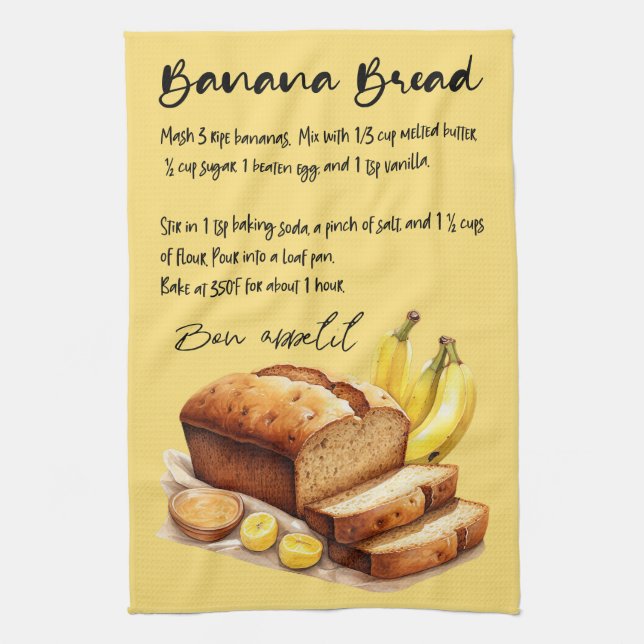 Banana Bread
Mash 3 ripe bananas. Mix with 1/3 cup melted butter,
½ cup sugar, 1 beaten egg, and 1 tsp vanilla.
Stir in 1 tsp baking soda, a pinch of salt, and 1 ½ cups
of flour. Pour into a loaf pan.
Bake at 350°F for about 1 hour.
Bon appetit